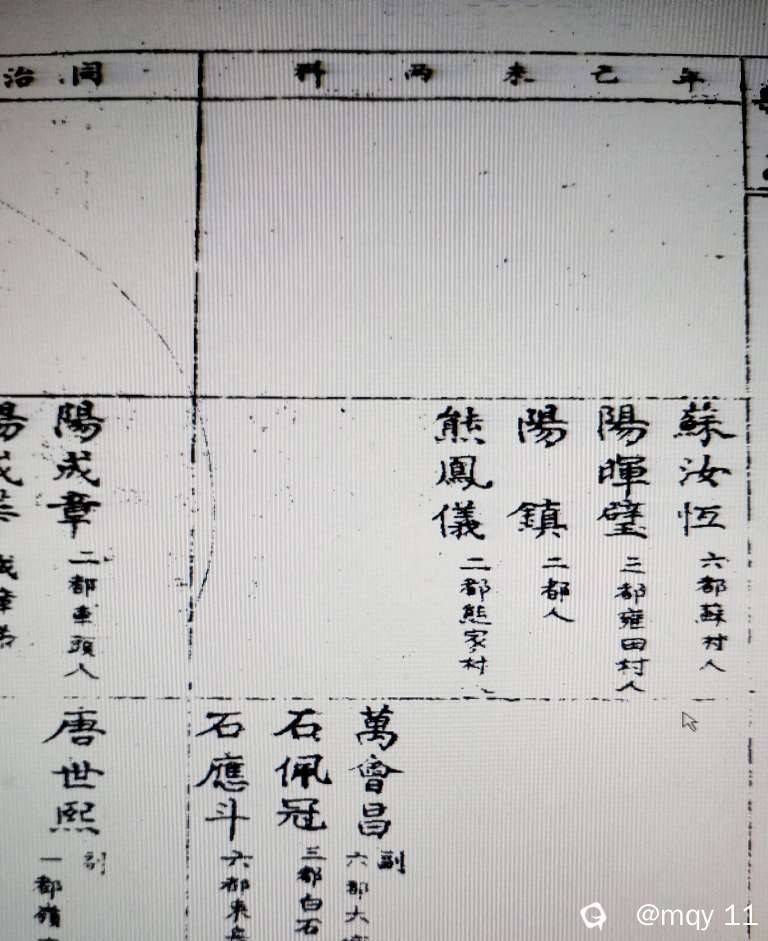 年己未两科
同治
蘇汝恆 六都蘇村人
陽暉壁 三都雍田村人
陽鎮 二都人
熊鳳儀 二都熊家村人
陽成章 二都車頭人
萬會昌 副 六都大
石佩冠 三都白石
石應斗 六都
唐世熙 副 一都嶺
@mqy 11